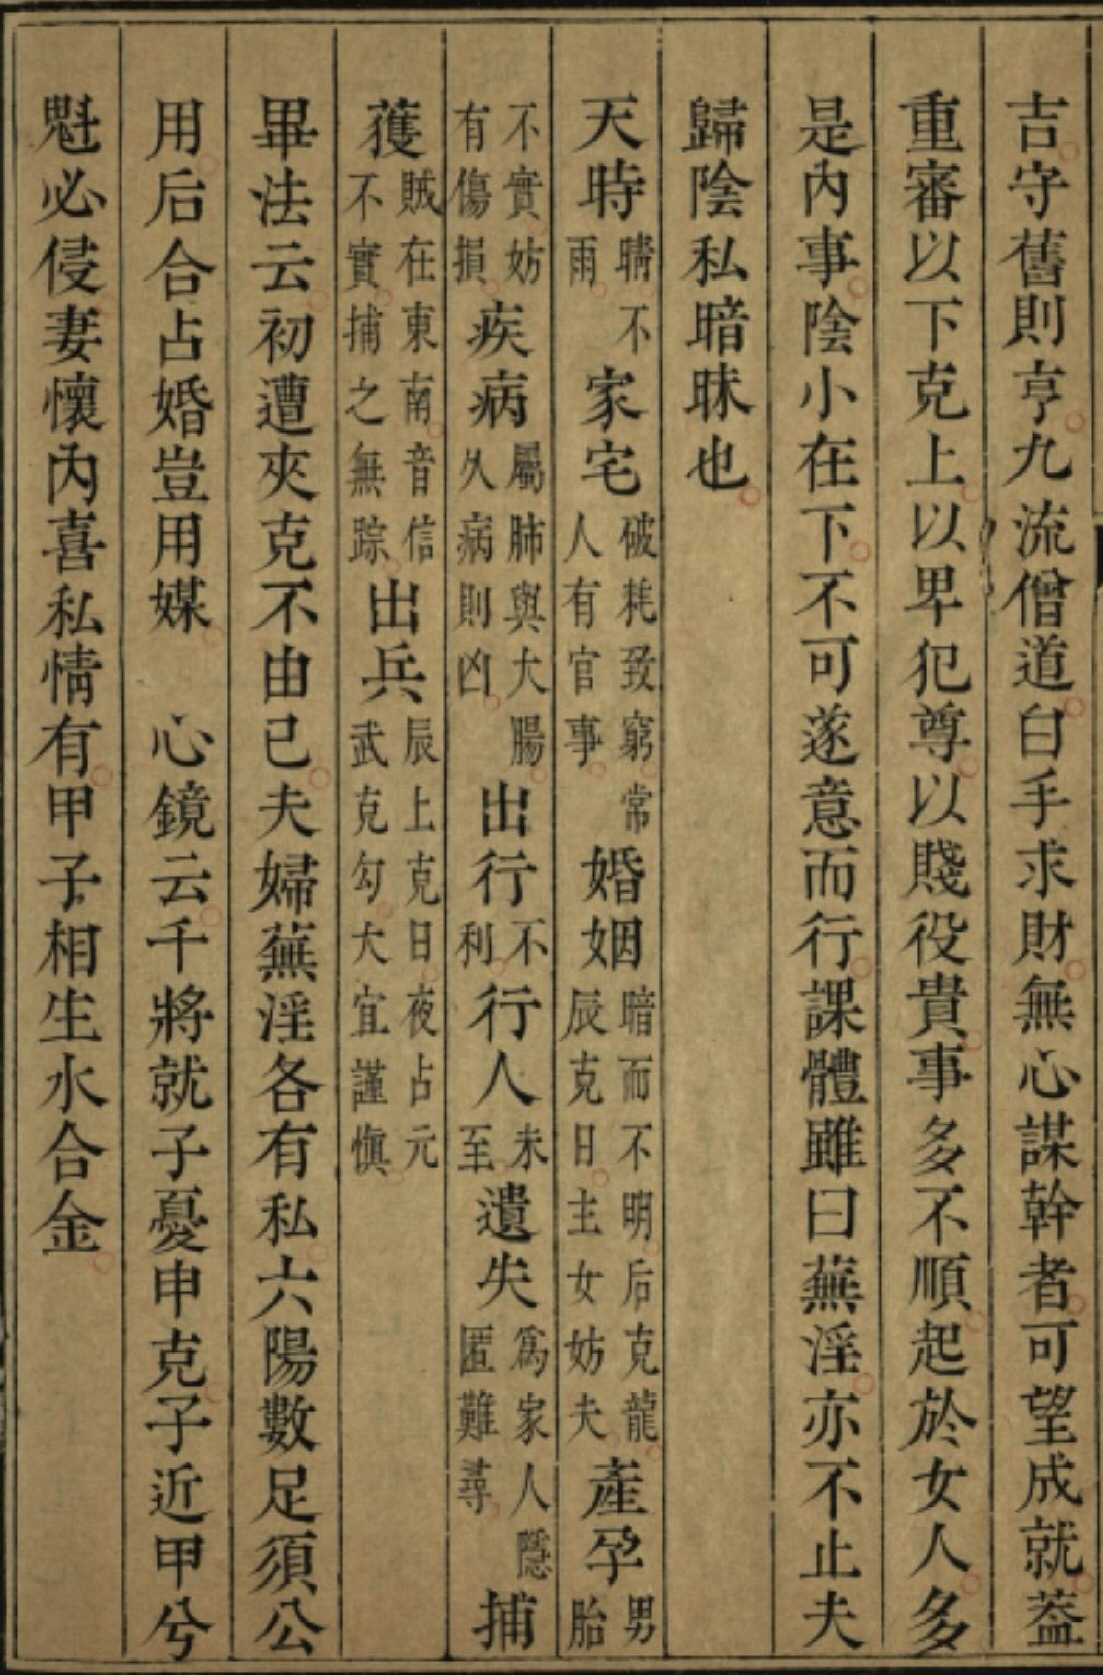 吉守舊則亨九流僧道白手求財無心謀幹者可望成就葢
重審以下克上以卑犯尊以賤役貴事多不順起於女人多
是內事陰小在下不可遂意而行課體雖曰蕪淫亦不止夫
歸陰私暗昧也
天時晴不雨家宅破耗致窮常人有官事婚姻暗而不明后克龍辰克日主女妨夫產孕男胎
不實妨有傷損疾病屬肺與大腸久病則凶出行不利行人未至遺失為家人隱匿難尋捕
獲賊在東南音信不實捕之無踪出兵辰上克日夜占元武克勾大宜謹慎
畢法云初遭夾克不由已夫婦蕪淫各有私六陽數足須公
用后合占婚豈用媒　心鏡云千將就子憂申克子近甲兮
魁必侵妻懷內喜私情有甲子相生水合金